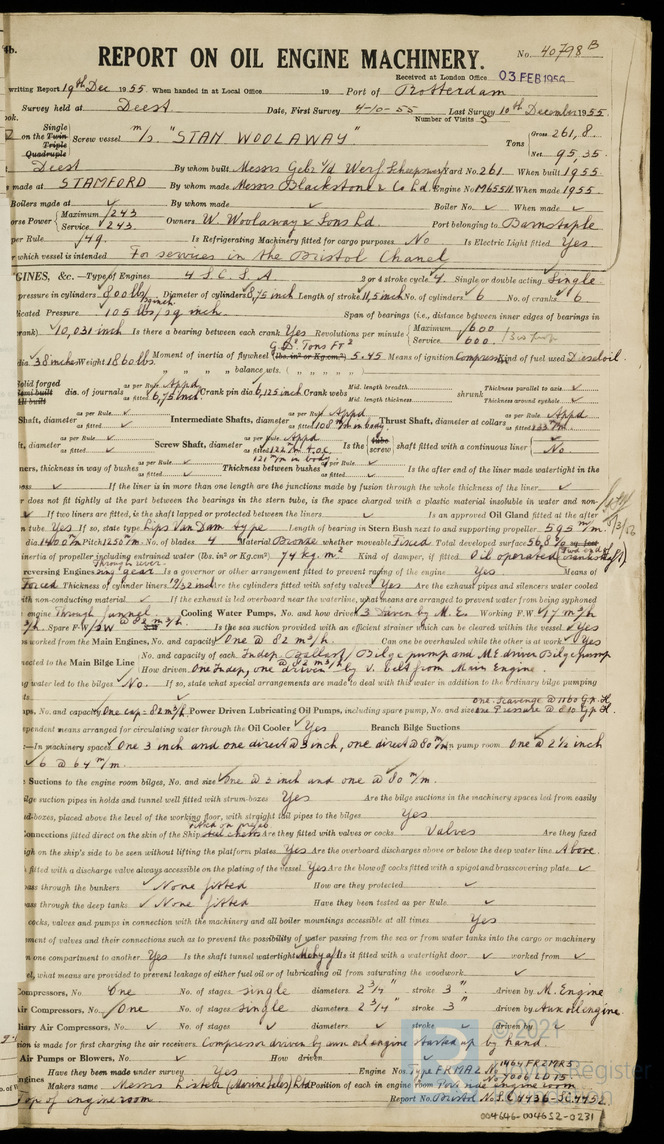 4b.
REPORT ON OIL ENGINE MACHINERY.
No. 40798 B
Received at London Office 03 FEB 1956
writing Report 19th Dec 1955 When handed in at Local Office 19 Port of Rotterdam
Survey held at Deest. Date, First Survey 4-10-55 Last Survey 10th December 1955
Number of Visits
on the Single Twin Triple Quadruple Screw vessel m/s. "STAN WOOLAWAY" Tons Gross 261,8. Net 95,35.
Deest By whom built Messrs Gebr. v/d Werf Yard No. 261 When built 1955
s made at STAMFORD By whom made Messrs Blackstone & Co Ld. Engine No. When made 1955
Boilers made at ✓ By whom made ✓ Boiler No. ✓ When made ✓
orse Power Maximum 243 Service 243. Owners W. Woolaway & Sons Ld. Port belonging to Barnstaple
per Rule Is Refrigerating Machinery fitted for cargo purposes No Is Electric Light fitted Yes
r which vessel is intended For services in the Bristol Chanel
GINES, &c. —Type of Engines 4 S.C.S.A 2 or 4 stroke cycle 4 Single or double acting Single
pressure in cylinders 800 lbs/sq inch Diameter of cylinders 8,75 inch Length of stroke 11,5 inch No. of cylinders 6 No. of cranks 6
icated Pressure 105 lbs/sq inch Span of bearings (i.e., distance between inner edges of bearings in
rank) 10,031 inch Is there a bearing between each crank Yes Revolutions per minute Maximum 600 Service 600.
dia. 38 inches Weight 1860 lbs Moment of inertia of flywheel (lbs. in² or Kg.cm²) 5.45 Means of ignition Compression Kind of fuel used Diesel oil.
" " " balance wts. ( " " " )
Solid forged Semi built All built dia. of journals as per Rule Appd as fitted 6,75 inch Crank pin dia. 6,125 inch Crank webs Mid. length breadth Mid. length thickness shrunk Thickness parallel to axis Thickness around eyehole
Shaft, diameter as per Rule as fitted Intermediate Shafts, diameter as per Rule Appd as fitted 108 m/m in body Thrust Shaft, diameter at collars as per Rule Appd as fitted 133 m/m
t, diameter as per Rule as fitted Screw Shaft, diameter as per Rule Appd as fitted 121 m/m in body Is the tube screw shaft fitted with a continuous liner No
ners, thickness in way of bushes as per Rule as fitted Thickness between bushes as per Rule as fitted Is the after end of the liner made watertight in the
oss ✓ If the liner is in more than one length are the junctions made by fusion through the whole thickness of the liner ✓
r does not fit tightly at the part between the bearings in the stern tube, is the space charged with a plastic material insoluble in water and non-
If two liners are fitted, is the shaft lapped or protected between the liners ✓ Is an approved Oil Gland fitted at the after
n tube. Yes If so, state type Lips Van Dam type Length of bearing in Stern Bush next to and supporting propeller 595 m/m.
dia. 1400 m/m Pitch 1250 m/m No. of blades 4 Material Bronze whether moveable Fixed Total developed surface
inertia of propeller including entrained water (lbs. in² or Kg.cm²) 74 kg.m² Kind of damper, if fitted Oil operated
reversing Engines Is a governor or other arrangement fitted to prevent racing of the engine Yes Means of
Forced Thickness of cylinder liners 19/32 inch Are the cylinders fitted with safety valves Yes Are the exhaust pipes and silencers water cooled
with non-conducting material ✓ If the exhaust is led overboard near the waterline, what means are arranged to prevent water from being syphoned
engine Through funnel. Cooling Water Pumps, No. and how driven 3 Driven by M.E. Working F.W. 17 m³/h
Is the sea suction provided with an efficient strainer which can be cleared within the vessel Yes
s worked from the Main Engines, No. and capacity One @ 82 m³/h. Can one be overhauled while the other is at work Yes
ected to the Main Bilge Line No. and capacity of each Indep. Ballast/Bilge pump and M.E. driven Bilge pump
How driven One Indep, one driven by V. belt from Main Engine.
ng water led to the bilges No. If so, state what special arrangements are made to deal with this water in addition to the ordinary bilge pumping
ps. No. and capacity One cap = 82 m³/h Power Driven Lubricating Oil Pumps, including spare pump, No. and size one Scavenge @ 1160 G.p.H. one Pressure @ 810 G.p.H.
ependent means arranged for circulating water through the Oil Cooler Yes Branch Bilge Suctions
—In machinery spaces One 3 inch and one direct @ 3 inch, one direct @ 80 m/m In pump room One @ 2½ inch
6 @ 64 m/m.
Suctions to the engine room bilges, No. and size One @ 3 inch and one @ 80 m/m.
ilge suction pipes in holds and tunnel well fitted with strum-boxes Yes Are the bilge suctions in the machinery spaces led from easily
ud-boxes, placed above the level of the working floor, with straight tail pipes to the bilges Yes
Connections fitted direct on the skin of the Ship Are they fitted with valves or cocks Valves Are they fixed
igh on the ship's side to be seen without lifting the platform plates Yes Are the overboard discharges above or below the deep water line Above.
fitted with a discharge valve always accessible on the plating of the vessel Yes Are the blow off cocks fitted with a spigot and brass covering plate ✓
pass through the bunkers None fitted How are they protected ✓
pass through the deep tanks None fitted Have they been tested as per Rule ✓
cocks, valves and pumps in connection with the machinery and all boiler mountings accessible at all times Yes
ement of valves and their connections such as to prevent the possibility of water passing from the sea or from water tanks into the cargo or machinery
m one compartment to another Yes Is the shaft tunnel watertight Mchy aft Is it fitted with a watertight door ✓ worked from ✓
el, what means are provided to prevent leakage of either fuel oil or of lubricating oil from saturating the woodwork ✓
Compressors, No. One No. of stages single diameters 2 3/4" stroke 3" driven by M. Engine
Air Compressors, No. One No. of stages single diameters 2 3/4" stroke 3" driven by Aux oil engine.
liary Air Compressors, No. ✓ No. of stages ✓ diameters ✓ stroke ✓ driven by ✓
sion is made for first charging the air receivers Compressor driven by own oil engine started up by hand.
Air Pumps or Blowers, No. ✓ How driven ✓
Have they been made under survey Yes Engine No. Type FRMA2
Engines Makers name Messrs Lister (Marine Sales) Ltd Position of each in engine room
top of engine room. Report No. Bristol
© 2021
004646-004652-0231